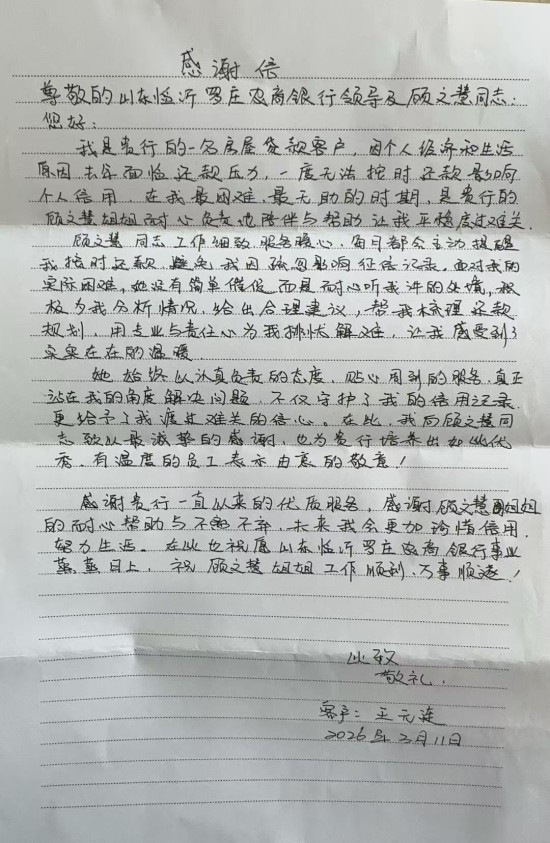 感谢信
尊敬的山东临沂罗庄农商银行领导及顾文慧同志:
您好:
我是贵行的一名房屋贷款客户,因个人经济和生活
原因去年面临还款压力,一度无法按时还款影响
个人信用,在我最困难、最无助的时期,是贵行的
顾文慧姐姐耐心负责地陪伴与帮助让我平稳度过难关.
顾文慧同志工作细致,服务暖心,每月都会主动提醒
我按时还款,避免我因疏忽影响征信记录,面对我的
实际困难,她没有简单催促而是耐心听我诉的处境,积
极为我分析情况,给出合理建议,帮我梳理还款
规划,用专业与责任心为我排忧解难,让我感受到了
实实在在的温暖.
她始终以认真负责的态度,贴心周到的服务,真正
站在我的角度解决问题,不仅守护了我的信用记录.
更给予了我渡过难关的信心。在此,我向顾文慧同
志致以最诚挚的感谢,也为贵行培养出如此优
秀、有温度的员工表示由衷的敬意!
感谢贵行一直以来的优质服务,感谢顾文慧姐姐
的耐心帮助与不抛不弃,未来我会更加珍惜信用.
努力生活。在此也祝愿山东临沂罗庄农商银行事业
蒸蒸日上,祝顾文慧姐姐工作顺利、万事顺遂!
此致
敬礼.
客户:王元连
2026年3月11日